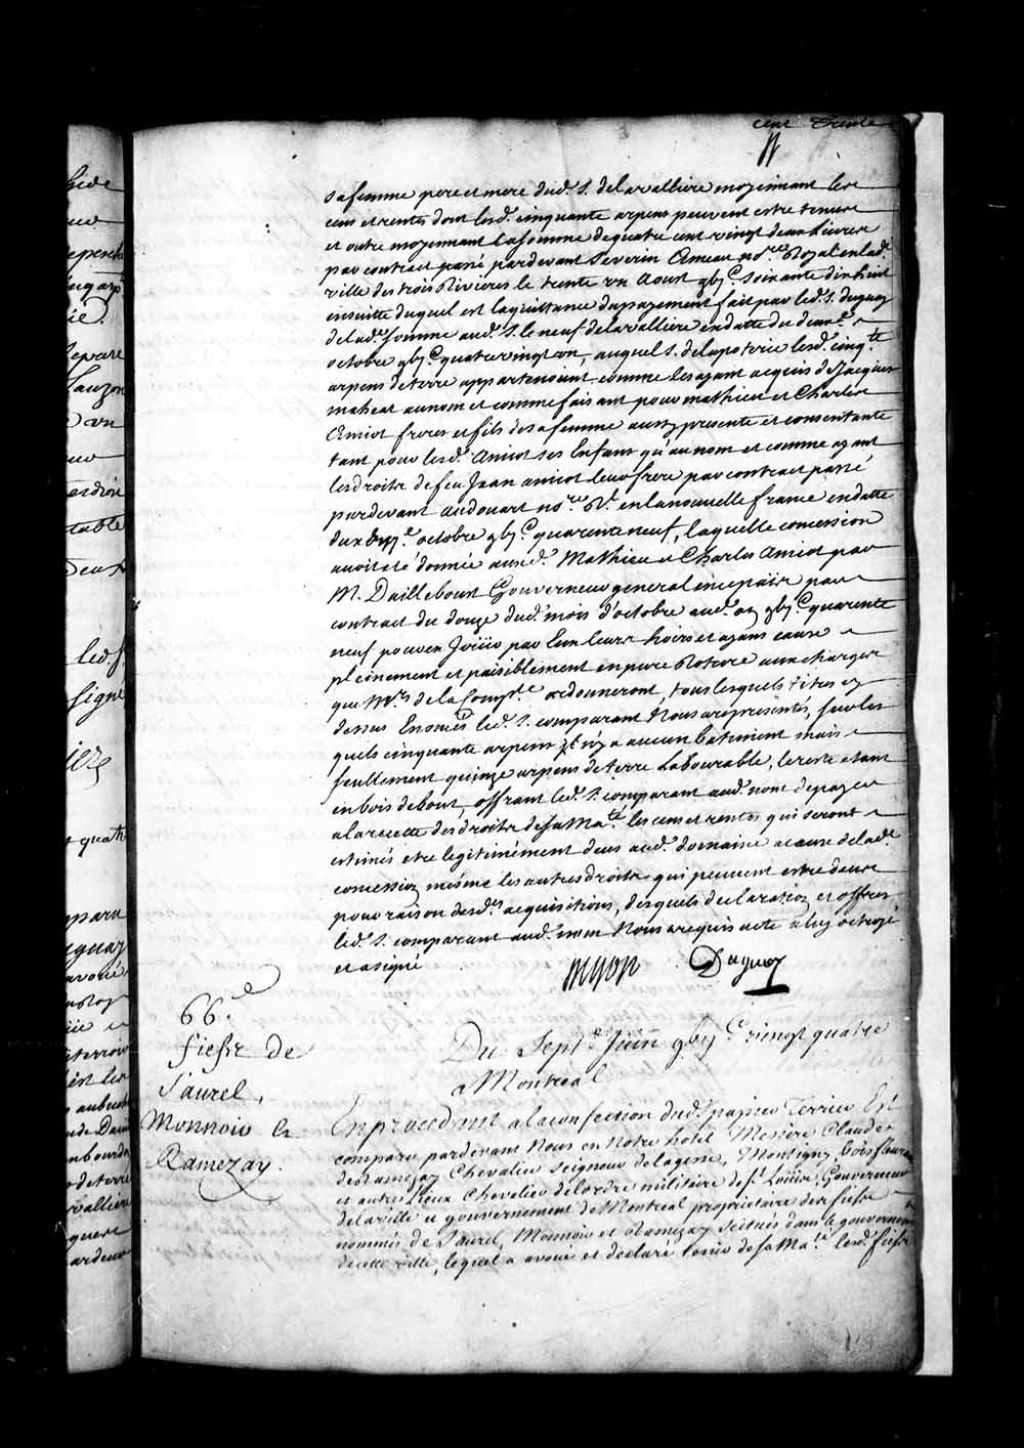 cent Trente
sa femme pere et mere dud. S. delavalliere moyennant les
cens et rentes dont lesd. cinquante arpens peuvent estre tenus
et outre moyennant la somme de quatre cent vingt deux livres
par contract passé pardevant Severin Ameau no.re Royal en lad.
ville des trois Rivieres le trente un Aoust gbj.c soixante dix huit
ensuitte duquel est la quittance du payement fait par led. S. duguay
de lad. somme aud. S. le neuf delavalliere en datte du deux.e
octobre gbj.c quatre vingt un, auquel S. delapoterie lesd. cinq.te
arpens de terre appartenoient comme les ayant acquis de Jacques
maheut au nom et comme faisant pour mathieu et Charles
Amiot freres et fils de sa femme aussy presente et consentante
tant pour lesd. Amiot ses Enfans qu'au nom et comme ayant
les droits de feu Jean amiot leur frere par contract passé
pardevant audouart no.re R. en la nouvelle france en datte
du octobre gbj.c quarente neuf, laquelle concession
avoit eté donnée auxd. Mathieu et Charles Amiot par
M. Daillebout Gouverneur general en ce païs par
contract du douze dud. mois d'octobre aud. an gbj.c quarente
neuf pour en Joüir par Eux leurs hoirs et ayans cause
pleinement et paisiblement en pure Roture aux charges
que M.rs de la Comp.e ordonneront, tous lesquels titres cy
dessus Enoncés led. S. comparant Nous a representés, sur les
quels cinquante arpens il n'y a aucun batiment mais
seullement quinze arpens de terre Labourable, le reste etant
en bois debout, offrant led. S. comparant aud. nom de payer
a la recette des droits de sa Ma.té les cens et rentes qui seront
estimés etre legitimément deus aud. domaine a cause de lad.
concession mesme les autres droits qui peuvent estre deus
pour raison desd. acquisitions, desquels declaration et offres
led. S. comparant aud. nom Nous a requis acte a luy octroyé
et a signé
Duguay
66.e
fiefs de
Saurel,
Monnoir et
Ramezay.
Du Sept.e Juin gbij.c vingt quatre
a Montreal
En procedant a la confection dud. papier Terrier Est
comparu pardevant Nous en Notre hotel Messire Claude
de Ramezay Chevalier Seigneur de lagesse, Montigny, boisfleurant
et autres lieux Chevalier de l'ordre militaire de S.t Loüis, Gouverneur
de la ville et gouvernement de Montreal proprietaire des fiefs
nommés de Saurel, Monnoir et Ramezay Scitués dans le gouvernem.t
de cette ville, lequel a avoué et declaré tenir de sa Ma.té lesd. fiefs